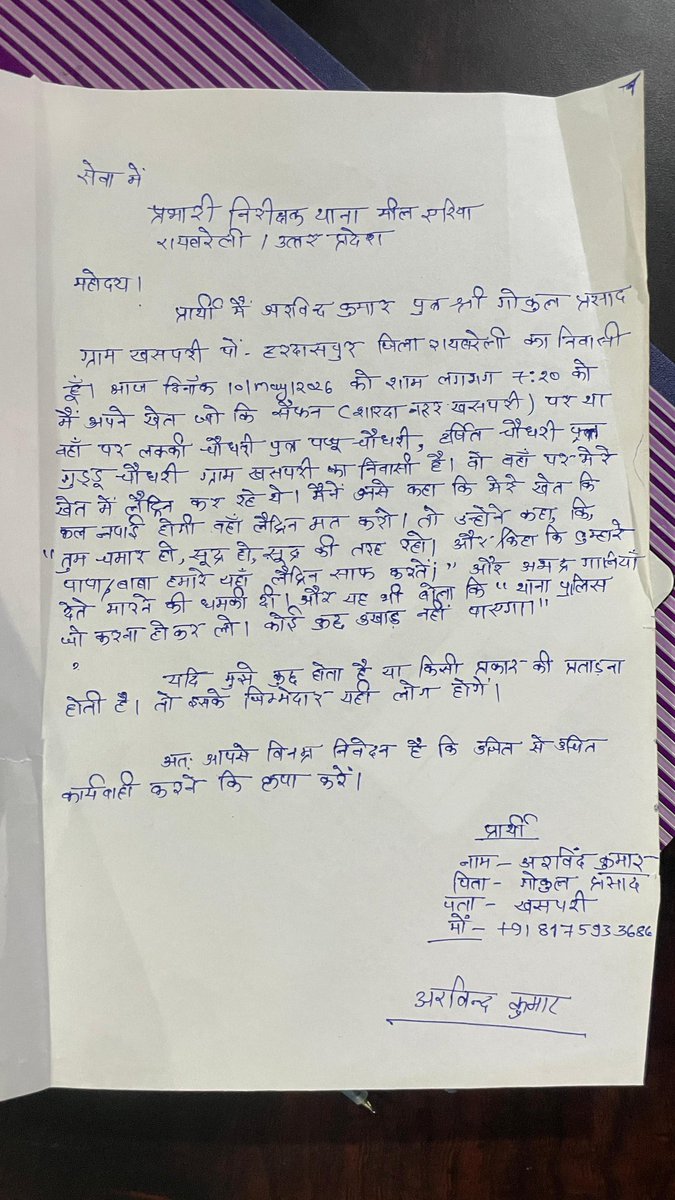 सेवा में
प्रभारी निरीक्षक थाना मील एरिया
रायबरेली / उत्तर प्रदेश
महोदय।
प्रार्थी मैं अरविंद कुमार पुत्र श्री गोकुल प्रसाद
ग्राम खसपरी पो- हरदासपुर जिला रायबरेली का निवासी
हूँ। आज दिनाँक 10/may/2026 को शाम लगभग 7:20 को
मैं अपने खेत जो कि सैफन (शारदा नहर खसपरी) पर था
वहाँ पर लक्की चौधरी पुत्र पप्पू चौधरी, हर्षित चौधरी पुत्र
गुड्डू चौधरी ग्राम खसपरी का निवासी है। वो वहाँ पर मेरे
खेत में लैट्रिन कर रहे थे। मैंने उससे कहा कि मेरे खेत कि
कल नपाई होगी वहाँ लैट्रिन मत करो। तो उन्होंने कहा, कि,
"तुम चमार हो, सूद्र हो, सूद्र की तरह रहो। और कहा कि तुम्हारे
पापा, बाबा हमारे यहाँ लैट्रिन साफ करते।" और अभद्र गालियाँ
देते मारने की धमकी दी। और यह भी बोला कि "थाना पुलिस
जो करना हो कर लो। कोई कुछ उखाड़ नहीं पाएगा।"
यदि मुझे कुछ होता है या किसी प्रकार की प्रताड़ना
होती है। तो इसके जिम्मेदार यही लोग होगें।
अतः आपसे विनम्र निवेदन है कि उचित से उचित
कार्यवाही करने कि कृपा करें।
प्रार्थी
नाम - अरविंद कुमार
पिता - गोकुल प्रसाद
पता - खसपरी
मों - +91 8175933686
अरविन्द कुमार